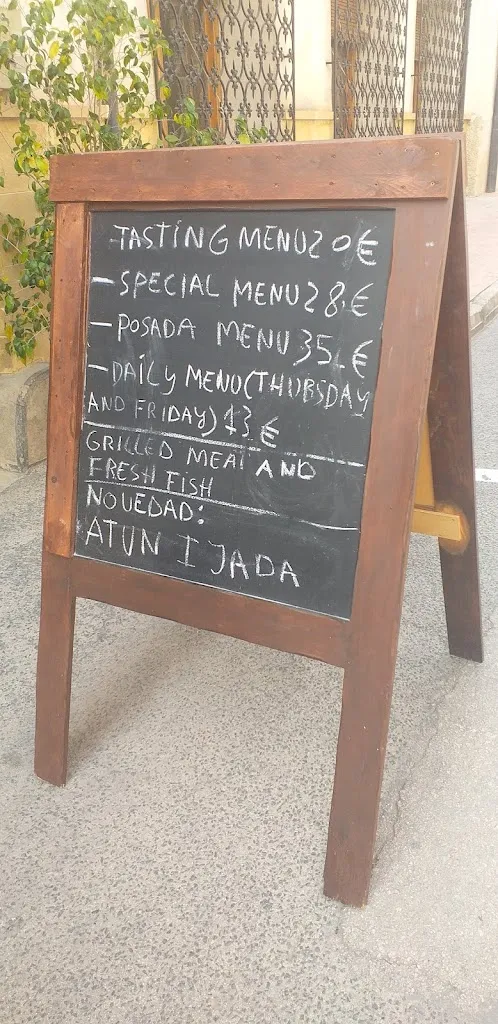 -TASTING MENU 20€
-SPECIAL MENU 28.€
-POSADA MENU 35.€
-DAILY MENO(THURSDAY
AND FRIDAY) 13€
GRILLED MEAT AND
FRESH FISH
NOUEDAD:
ATUN IJADA